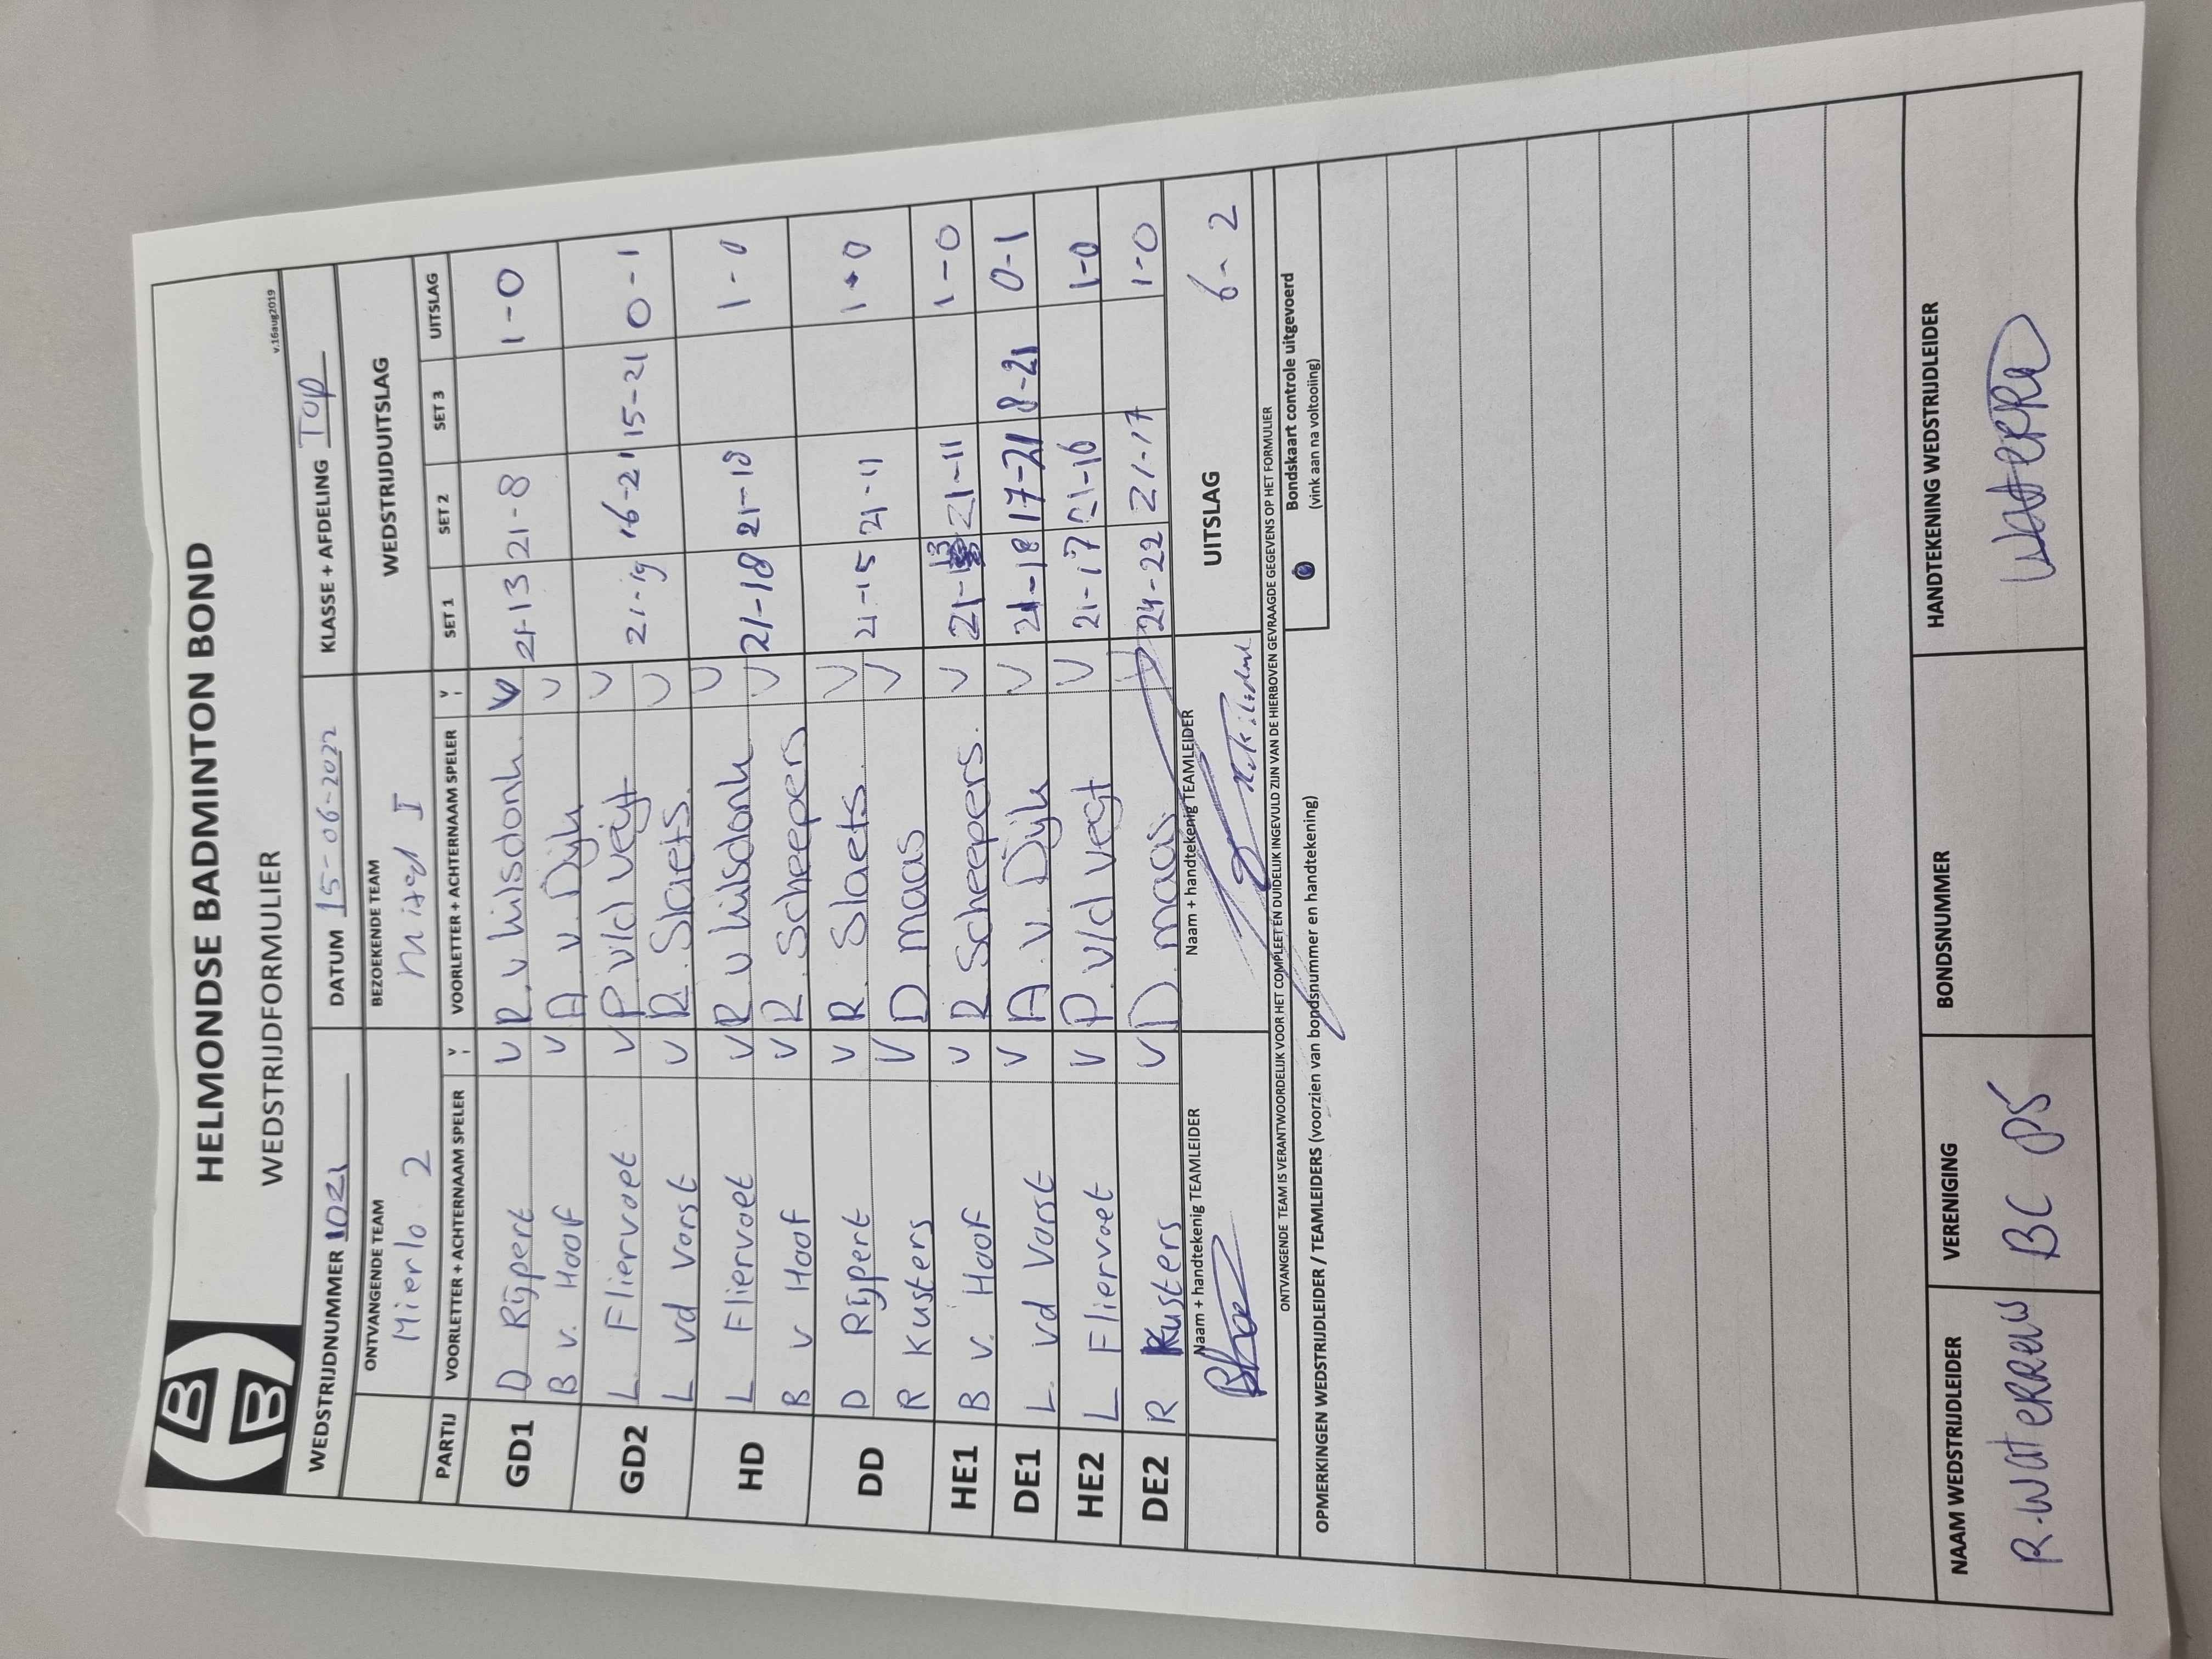 HELMONDSE BADMINTON BOND
WEDSTRIJDFORMULIER
v.16aug2019
WEDSTRIJDNUMMER 1021 DATUM 15-06-2022 KLASSE + AFDELING Top
ONTVANGENDE TEAM BEZOEKENDE TEAM WEDSTRIJDUITSLAG
Mierlo 2 mixed I
PARTIJ VOORLETTER + ACHTERNAAM SPELER V VOORLETTER + ACHTERNAAM SPELER V SET 1 SET 2 SET 3 UITSLAG
GD1 D Rijpert V R. v Hilsdonk V 21-13 21-8 1-0
B v. Hoof V A v. Dijk V
GD2 L Fliervoet V P. v/d Vegt V 21-19 16-21 15-21 0-1
L vd Vorst V R. Slaets. V
HD L Fliervoet V R v Hilsdonk V 21-18 21-18 1-0
B v Hoof V R. Scheepers V
DD D Rijpert V R. Slaets. V 21-15 21-11 1-0
R Kusters V D maas V
HE1 B v. Hoof V R Scheepers. V 21-13 21-11 1-0
DE1 L. vd Vorst V A. v. Dijk V 21-18 17-21 8-21 0-1
HE2 L Fliervoet V P. v/d Vegt V 21-17 21-16 1-0
DE2 R Kusters V D. maas V 24-22 21-17 1-0
Naam + handtekenig TEAMLEIDER Naam + handtekenig TEAMLEIDER UITSLAG 6-2
ONTVANGENDE TEAM IS VERANTWOORDELIJK VOOR HET COMPLEET EN DUIDELIJK INGEVULD ZIJN VAN DE HIERBOVEN GEVRAAGDE GEGEVENS OP HET FORMULIER
Bondskaart controle uitgevoerd
(vink aan na voltooiing)
OPMERKINGEN WEDSTRIJDLEIDER / TEAMLEIDERS (voorzien van bondsnummer en handtekening)
NAAM WEDSTRIJDLEIDER VERENIGING BONDSNUMMER HANDTEKENING WEDSTRIJDLEIDER
R. Waterreus BC 85